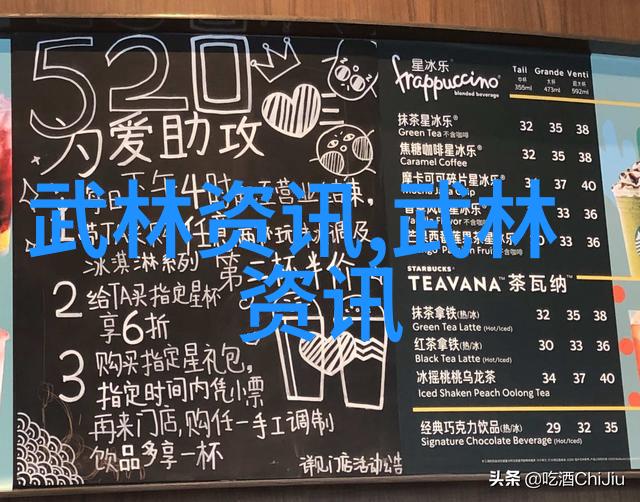 520
为爱助攻
武林资讯,武林
资讯
冰淇淋系列 第二杯半价
2 给TA买指定星杯
享6折
3 购买指定星礼包,
指定时间内凭小票
再来门店,购任一手工调制
饮品多享一杯
详见门店活动公告
星冰乐®
frappuccino®
blended beverage
Tall Grande Venti
中杯 大杯 超大杯
355ml 473ml 592ml
抹茶星冰乐® 32 35 38
Green Tea 不含咖啡
焦糖咖啡星冰乐® 32 35 38
Caramel Coffee
摩卡可可碎片星冰乐® 37 40
33 36
33 36
STARBUCKS®
TEAVANA™ 茶瓦纳™
抹茶拿铁(热/冰) 32 35 38
Green Tea Latte (Hot/Iced)
红茶拿铁(热/冰) 30 33 36
Black Tea Latte (Hot/Iced)
冰摇桃桃乌龙茶 34 37 40
Iced Shaken Peach Oolong Tea
经典巧克力饮品(热/冰) 29 32 35
Signature Chocolate Beverage (Hot/Iced)
头条 @吃酒ChiJiu